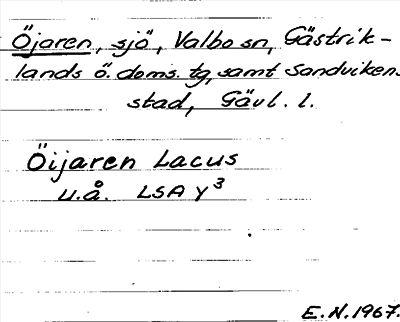 Öjaren, sjö, Valbo sn, Gästrik-
lands ö. doms. tg, samt Sandvikens
stad, Gävl. l.
Öijaren Lacus
u.å. LSA Y³
E.N. 1967.